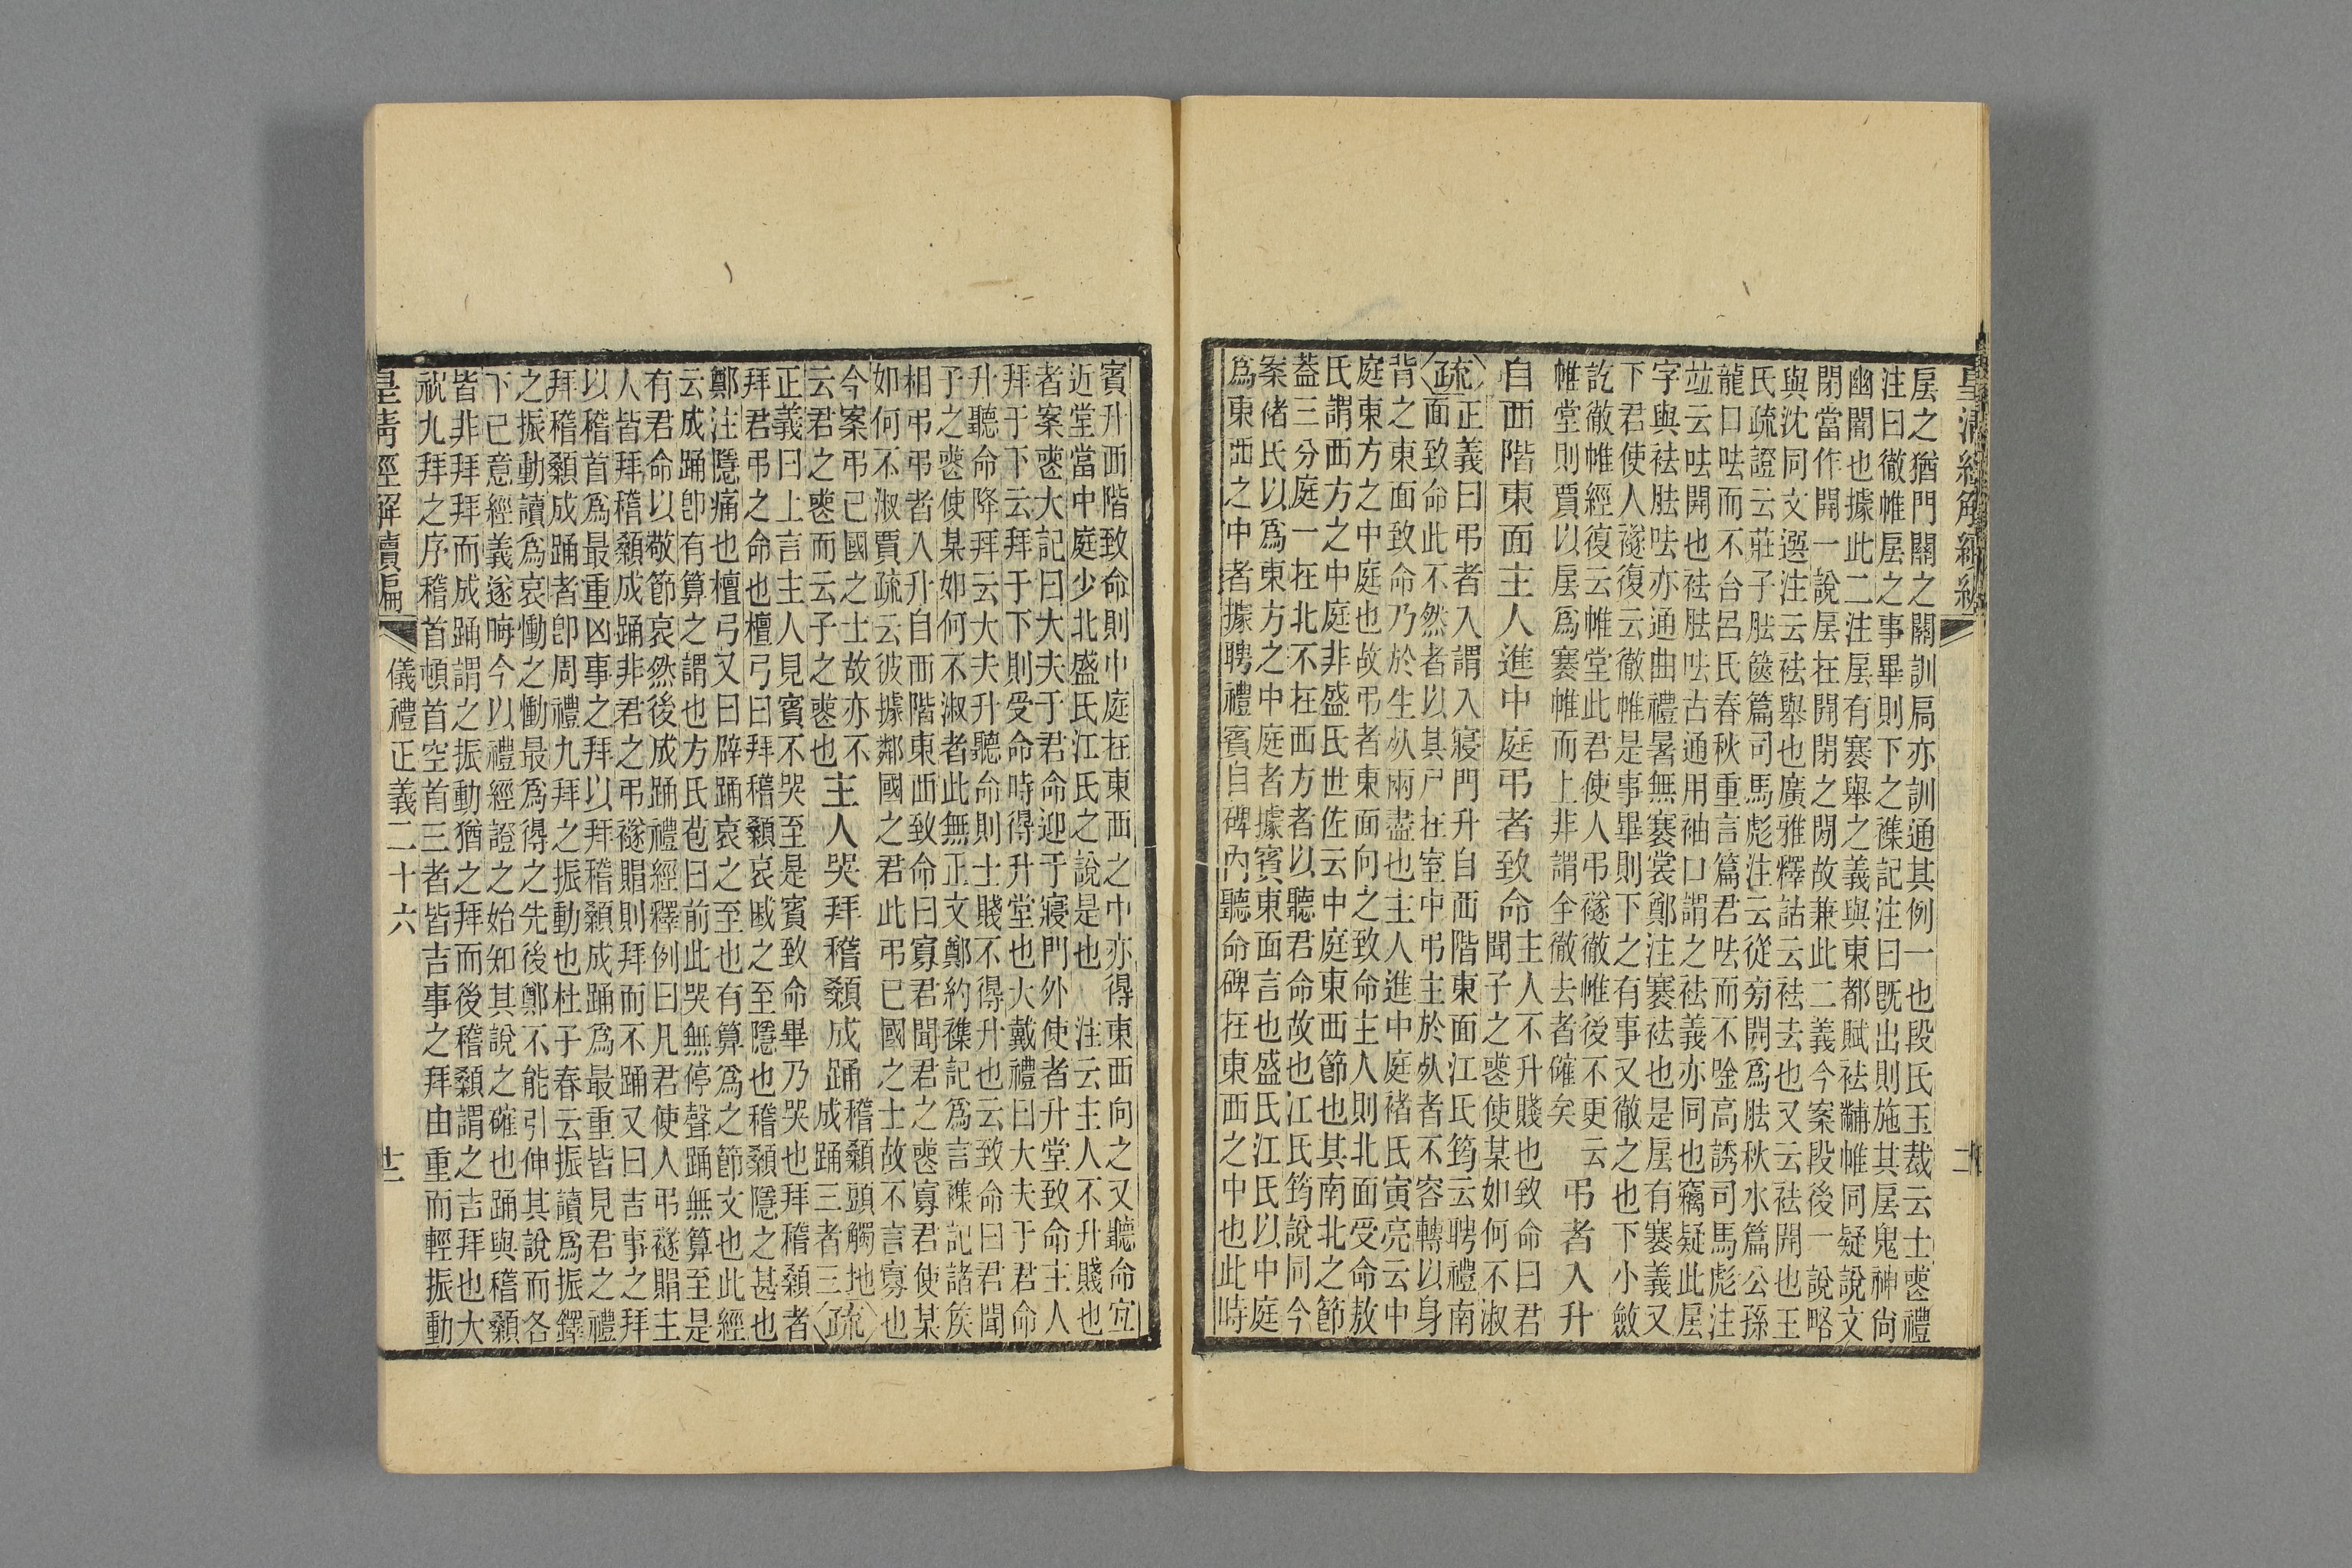 皇清經解續編
㞒之猶門關之關訓扃亦訓通其例一也段氏玉裁云士喪禮
注曰徹帷㞒之事畢則下之襍記注曰旣出則施其㞒鬼神尙
幽闇也據此二注㞒有褰舉之義與東都賦袪黼帷同疑說文
閉當作開一說㞒在開閉之閒故兼此二義今案段後一說略
與沈同文選注云袪舉也廣雅釋詁云袪去也又云袪開也王
氏疏證云莊子胠篋篇司馬彪注云從旁開爲胠秋水篇公孫
龍口呿而不台呂氏春秋重言篇君呿而不唫高誘司馬彪注
竝云呿開也袪胠呿古通用袖口謂之袪義亦同也竊疑此㞒
字與袪胠呿亦通曲禮暑無褰裳鄭注褰袪也是㞒有褰義又
下君使人襚復云徹帷是事畢則下之有事又徹之也下小斂
訖徹帷經復云帷堂此君使人弔襚徹帷後不更云
帷堂則賈以㞒爲褰帷而上非謂全徹去者確矣
弔者入升
自西階東面主人進中庭弔者致命
主人不升賤也致命曰君
聞子之喪使某如何不淑
疏正義曰弔者入謂入寢門升自西階東面江氏筠云聘禮南
面致命此不然者以其尸在室中弔主於㱙者不容轉以身
背之東面致命乃於生㱙兩盡也主人進中庭褚氏寅亮云中
庭東方之中庭也故弔者東面向之致命主人則北面受命敖
氏謂西方之中庭非盛氏世佐云中庭東西節也其南北之節
蓋三分庭一在北不在西方者以聽君命故也江氏筠說同今
案褚氏以爲東方之中庭者據賓東面言也盛氏江氏以中庭
爲東西之中者據聘禮賓自碑內聽命碑在東西之中也此時
賓升西階致命則中庭在東西之中亦得東西向之又聽命宜
近堂當中庭少北盛氏江氏之說是也 注云主人不升賤也
者案喪大記曰大夫于君命迎于寢門外使者升堂致命主人
拜于下云拜于下則受命時得升堂也大戴禮曰大夫于君命
升聽命降拜云大夫升聽命則士賤不得升也云致命曰君聞
子之喪使某如何不淑者此無正文鄭約襍記爲言襍記諸矦
相弔弔者入升自西階東面致命曰寡君聞君之喪寡君使某
如何不淑賈疏云彼據鄰國之君此弔已國之士故不言寡也
今案弔已國之士故亦不
云君之喪而云子之喪也
主人哭拜稽顙成踊
稽顙頭觸地
成踊三者三
疏
正義曰上言主人見賓不哭至是賓致命畢乃哭也拜稽顙者
拜君弔之命也檀弓曰拜稽顙哀戚之至隱也稽顙隱之甚也
鄭注隱痛也檀弓又曰辟踊哀之至也有算爲之節文也此經
云成踊卽有算之謂也方氏苞曰前此哭無停聲踊無算至是
有君命以敬節哀然後成踊禮經釋例曰凡君使人弔襚賵主
人皆拜稽顙成踊非君之弔襚賵則拜而不踊又曰吉事之拜
以稽首爲最重凶事之拜以拜稽顙成踊爲最重皆見君之禮
拜稽顙成踊者卽周禮九拜之振動也杜子春云振讀爲振鐸
之振動讀爲哀慟之慟最爲得之先後鄭不能引伸其說而各
下已意經義遂晦今以禮經證之始知其說之確也踊與稽顙
皆非拜拜而成踊謂之振動猶之拜而後稽顙謂之吉拜也大
祝九拜之序稽首頓首空首三者皆吉事之拜由重而輕振動
皇清經解續編 儀禮正義二十六